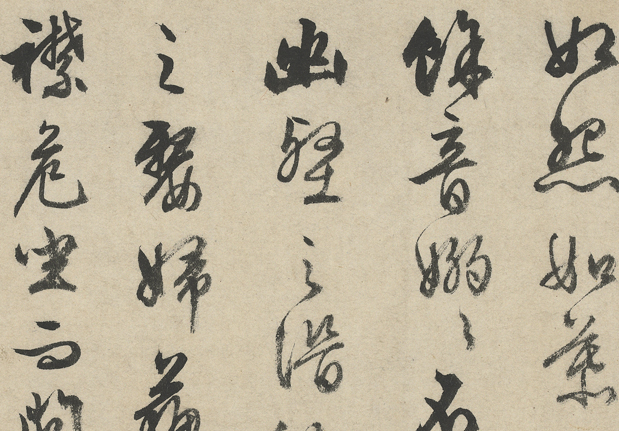 如怨如慕
餘音嫋〻不
幽壑之潜
之嫠婦蘇
襟危坐而問